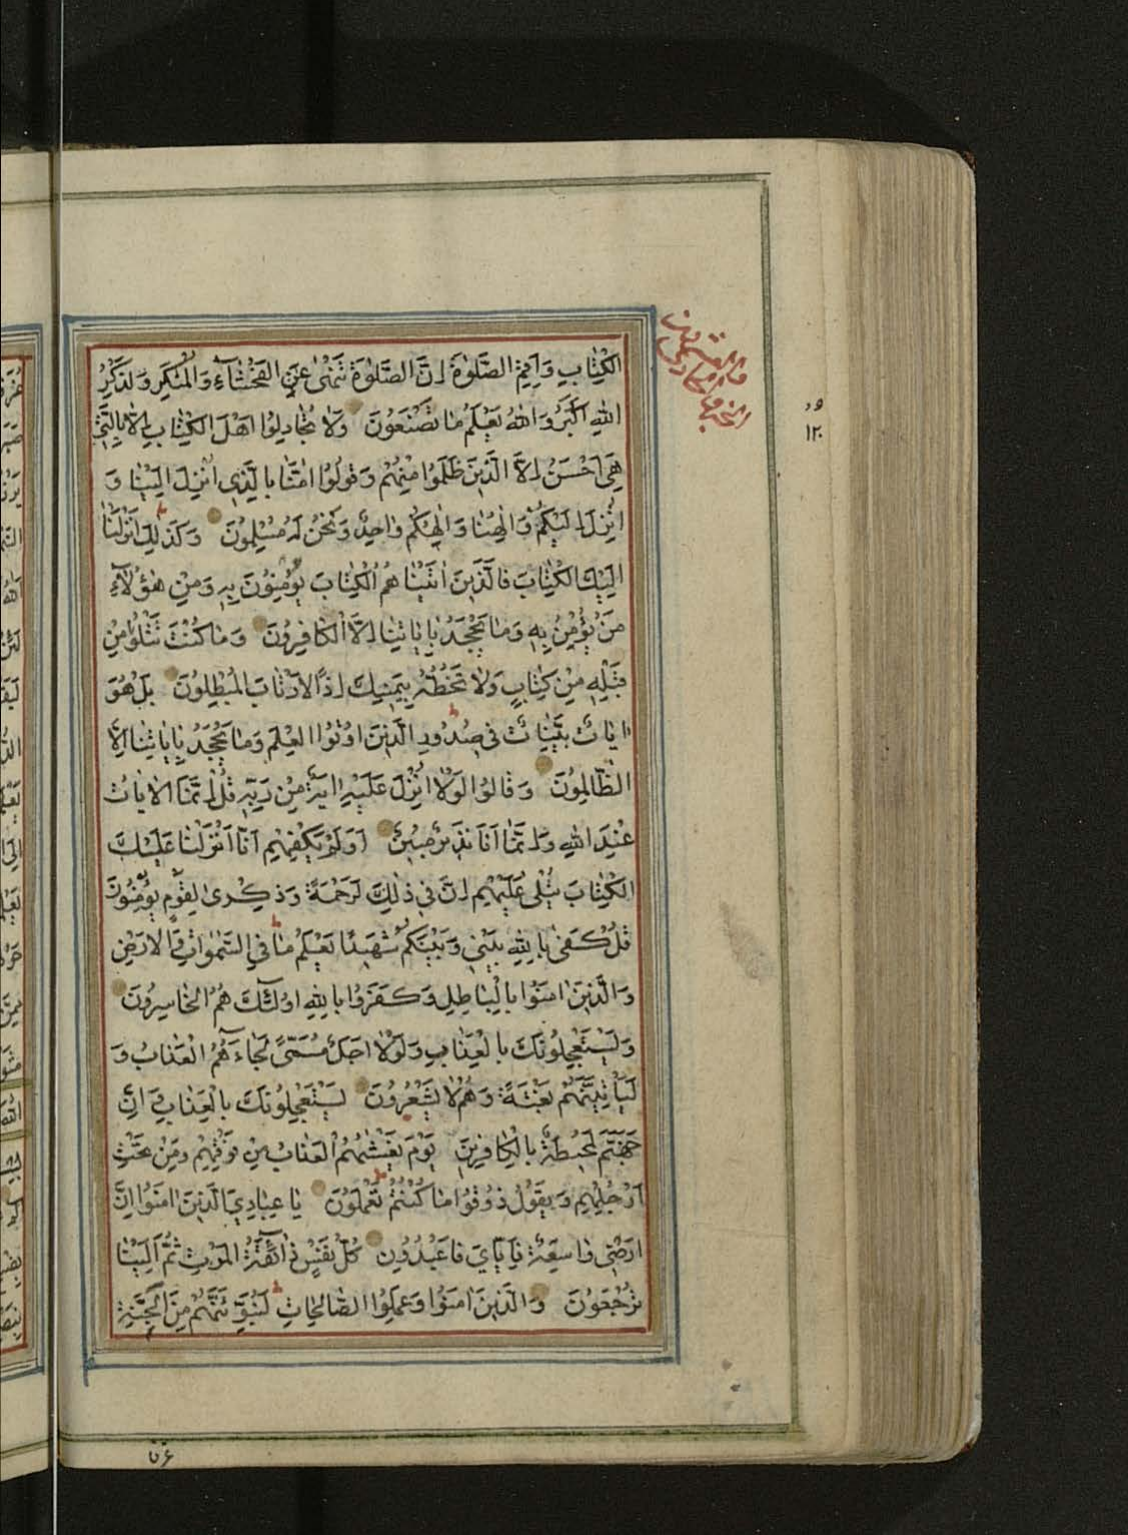 الْكِتَابِ وَاَقِمِ الصَّلٰوةَ اِنَّ الصَّلٰوةَ تَنْهٰى عَنِ الْفَحْشَآءِ وَالْمُنْكَرِ وَلَذِكْرُ
اللّٰهِ اَكْبَرُ وَاللّٰهُ يَعْلَمُ مَا تَصْنَعُونَ وَلَا تُجَادِلُوا اَهْلَ الْكِتَابِ اِلَّا بِالَّتِي
هِيَ اَحْسَنُ اِلَّا الَّذِينَ ظَلَمُوا مِنْهُمْ وَقُولُوا اٰمَنَّا بِالَّذِي اُنْزِلَ اِلَيْنَا وَ
اُنْزِلَ اِلَيْكُمْ وَاِلٰهُنَا وَاِلٰهُكُمْ وَاحِدٌ وَنَحْنُ لَهُ مُسْلِمُونَ وَكَذٰلِكَ اَنْزَلْنَا
اِلَيْكَ الْكِتَابَ فَالَّذِينَ اٰتَيْنَاهُمُ الْكِتَابَ يُؤْمِنُونَ بِهِ وَمِنْ هٰؤُلَآءِ
مَنْ يُؤْمِنُ بِهِ وَمَا يَجْحَدُ بِاٰيَاتِنَا اِلَّا الْكَافِرُونَ وَمَا كُنْتَ تَتْلُوا مِنْ
قَبْلِهِ مِنْ كِتَابٍ وَلَا تَخُطُّهُ بِيَمِينِكَ اِذًا لَارْتَابَ الْمُبْطِلُونَ بَلْ هُوَ
اٰيَاتٌ بَيِّنَاتٌ فِي صُدُورِ الَّذِينَ اُوتُوا الْعِلْمَ وَمَا يَجْحَدُ بِاٰيَاتِنَا اِلَّا
الظَّالِمُونَ وَقَالُوا لَوْلَا اُنْزِلَ عَلَيْهِ اٰيَةٌ مِنْ رَبِّهِ قُلْ اِنَّمَا الْاٰيَاتُ
عِنْدَ اللّٰهِ وَاِنَّمَا اَنَا نَذِيرٌ مُبِينٌ اَوَلَمْ يَكْفِهِمْ اَنَّا اَنْزَلْنَا عَلَيْكَ
الْكِتَابَ يُتْلٰى عَلَيْهِمْ اِنَّ فِي ذٰلِكَ لَرَحْمَةً وَذِكْرٰى لِقَوْمٍ يُؤْمِنُونَ
قُلْ كَفٰى بِاللّٰهِ بَيْنِي وَبَيْنَكُمْ شَهِيدًا يَعْلَمُ مَا فِي السَّمٰوَاتِ وَالْاَرْضِ
وَالَّذِينَ اٰمَنُوا بِالْبَاطِلِ وَكَفَرُوا بِاللّٰهِ اُولٰٓئِكَ هُمُ الْخَاسِرُونَ
وَيَسْتَعْجِلُونَكَ بِالْعَذَابِ وَلَوْلَا اَجَلٌ مُسَمًّى لَجَآءَهُمُ الْعَذَابُ وَ
لَيَأْتِيَنَّهُمْ بَغْتَةً وَهُمْ لَا يَشْعُرُونَ يَسْتَعْجِلُونَكَ بِالْعَذَابِ وَاِنَّ
جَهَنَّمَ لَمُحِيطَةٌ بِالْكَافِرِينَ يَوْمَ يَغْشٰيهُمُ الْعَذَابُ مِنْ فَوْقِهِمْ وَمِنْ تَحْتِ
اَرْجُلِهِمْ وَيَقُولُ ذُوقُوا مَا كُنْتُمْ تَعْمَلُونَ يَا عِبَادِيَ الَّذِينَ اٰمَنُوا اِنَّ
اَرْضِي وَاسِعَةٌ فَاِيَّايَ فَاعْبُدُونِ كُلُّ نَفْسٍ ذَآئِقَةُ الْمَوْتِ ثُمَّ اِلَيْنَا
تُرْجَعُونَ وَالَّذِينَ اٰمَنُوا وَعَمِلُوا الصَّالِحَاتِ لَنُبَوِّئَنَّهُمْ مِنَ الْجَنَّةِ